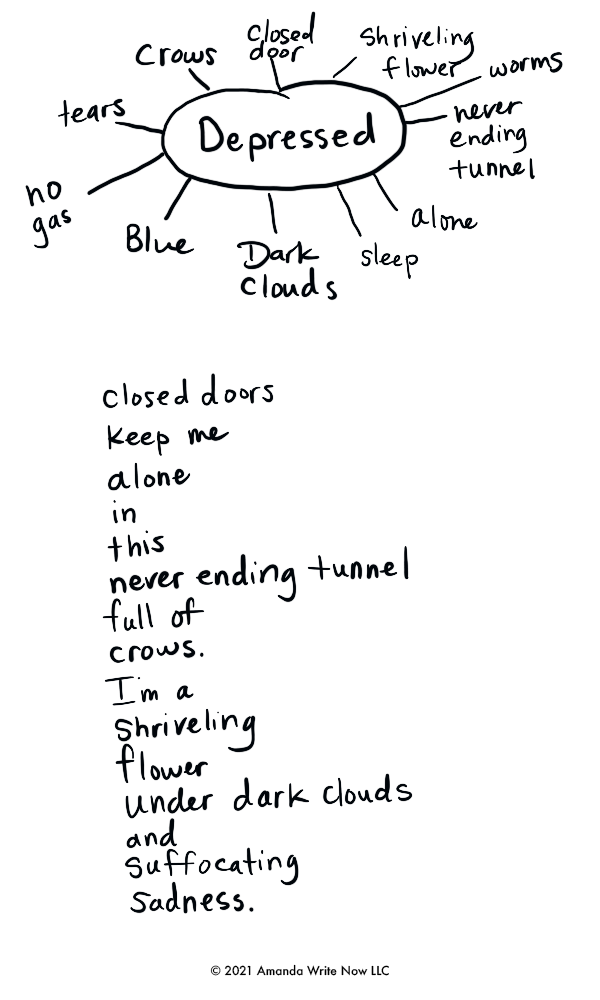 Crows
closed
door
Shriveling
flower
worms
tears
Depressed
never
ending
tunnel
no
gas
Blue
Dark
Clouds
sleep
alone
closed doors
keep me
alone
in
this
never ending tunnel
full of
crows.
I'm a
Shriveling
flower
under dark clouds
and
suffocating
sadness.
© 2021 Amanda Write Now LLC